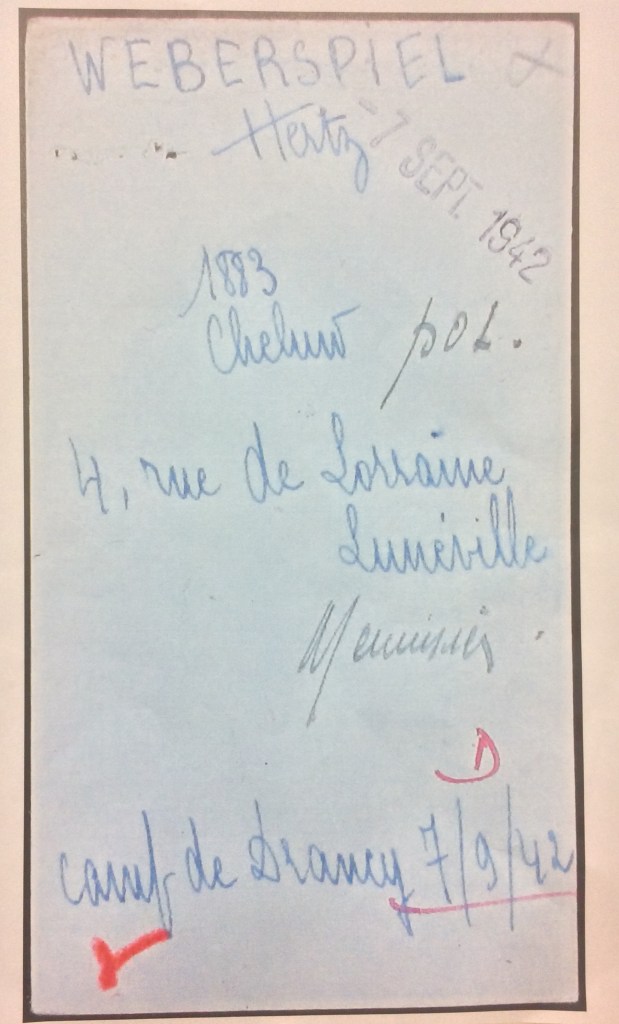 WEBERSPIEL
Hertz
-7 SEPT. 1942
1883
Chelmo pol.
4, rue de Lorraine
Lunéville
Menuisier.
D
camp de Drancy 7/9/42